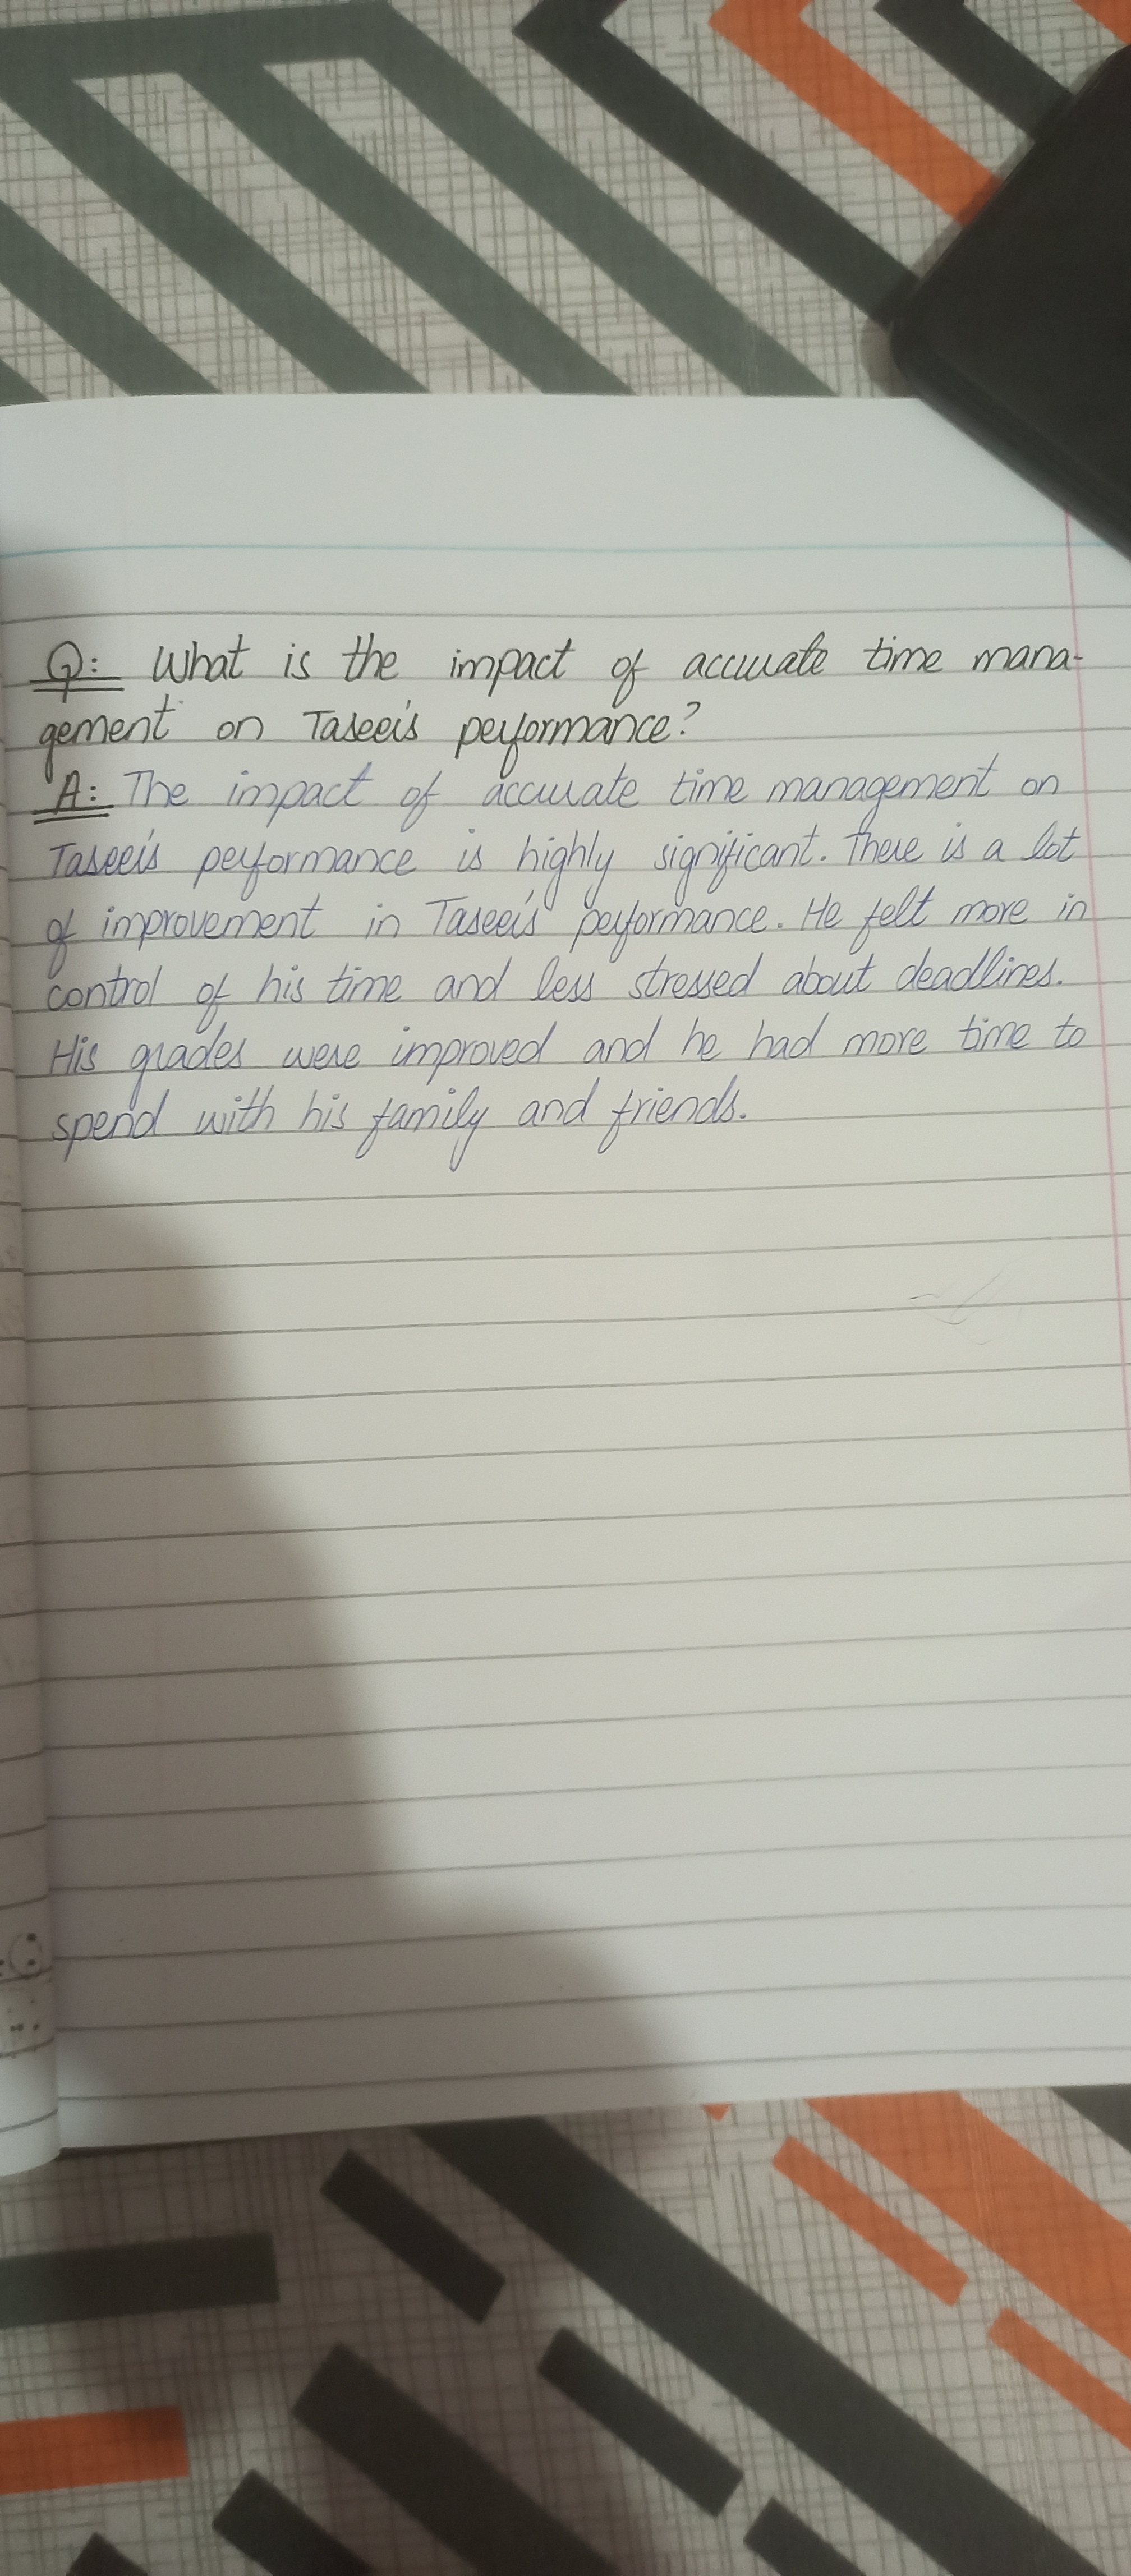 Q: What is the impact of accurate time mana-
gement on Taseer's performance?
A: The impact of accurate time management on
Taseer's performance is highly significant. There is a lot
of improvement in Taseer's performance. He felt more in
control of his time and less stressed about deadlines.
His grades were improved and he had more time to
spend with his family and friends.